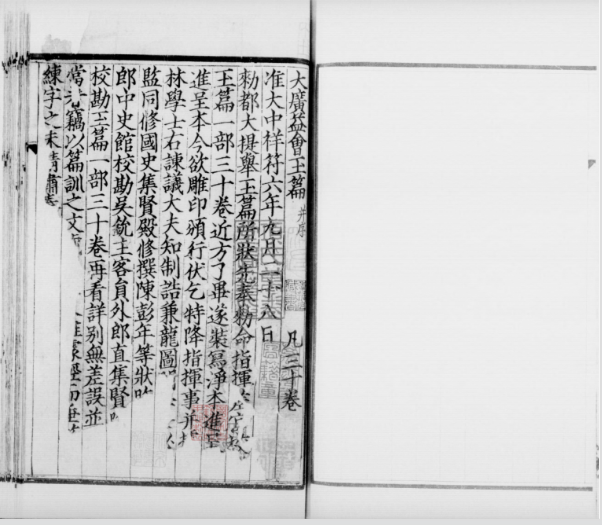 大廣益會玉篇 并序 凡三十卷
准大中祥符六年九月二十八日
勑都大提舉玉篇所狀先奉勑命指揮
玉篇一部三十卷近方了畢遂裝寫淨本進呈
進呈本今欲雕印頒行伏乞特降指揮事
林學士右諫議大夫知制誥兼龍圖
監同修國史集賢殿修撰陳彭年等狀
郎中史館校勘吳銳主客員外郎直集賢
校勘玉篇一部三十卷再看詳別無差誤並
篇訓之文
練字之未精